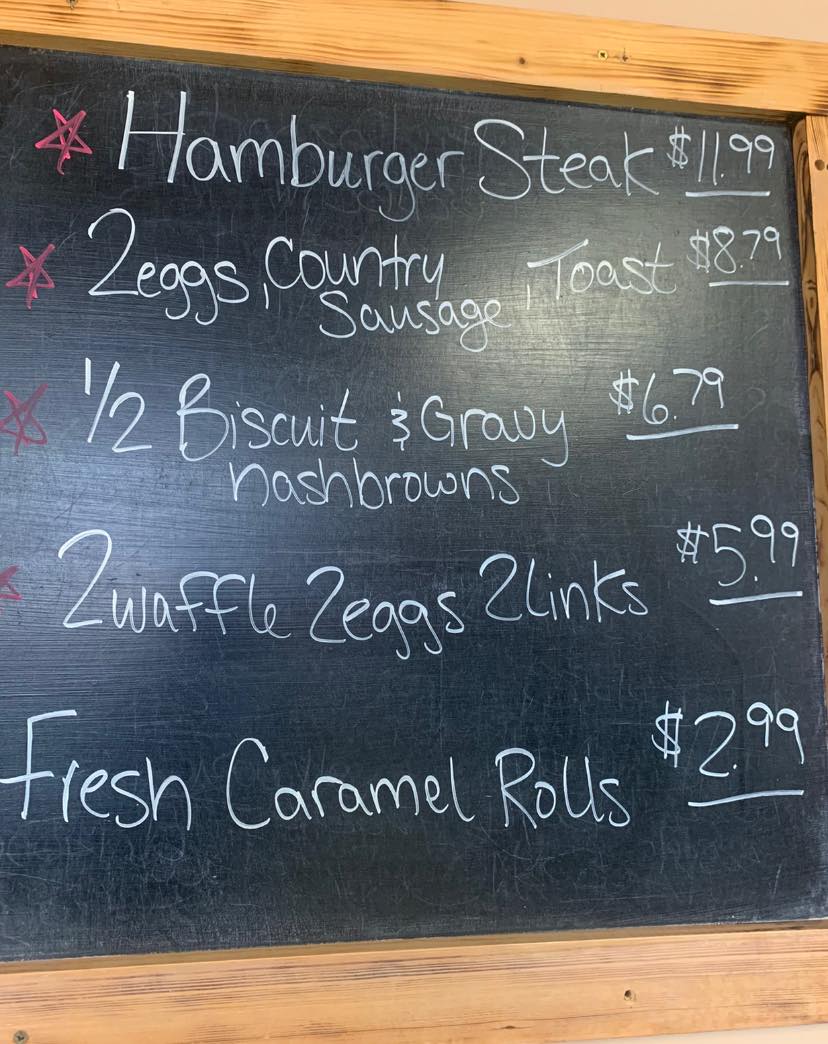 Hamburger Steak $11.99
2 eggs, Country Sausage, Toast $8.79
1/2 Biscuit & Gravy $6.79
hashbrowns
2 waffle 2 eggs 2 Links $5.99
Fresh Caramel Rolls $2.99